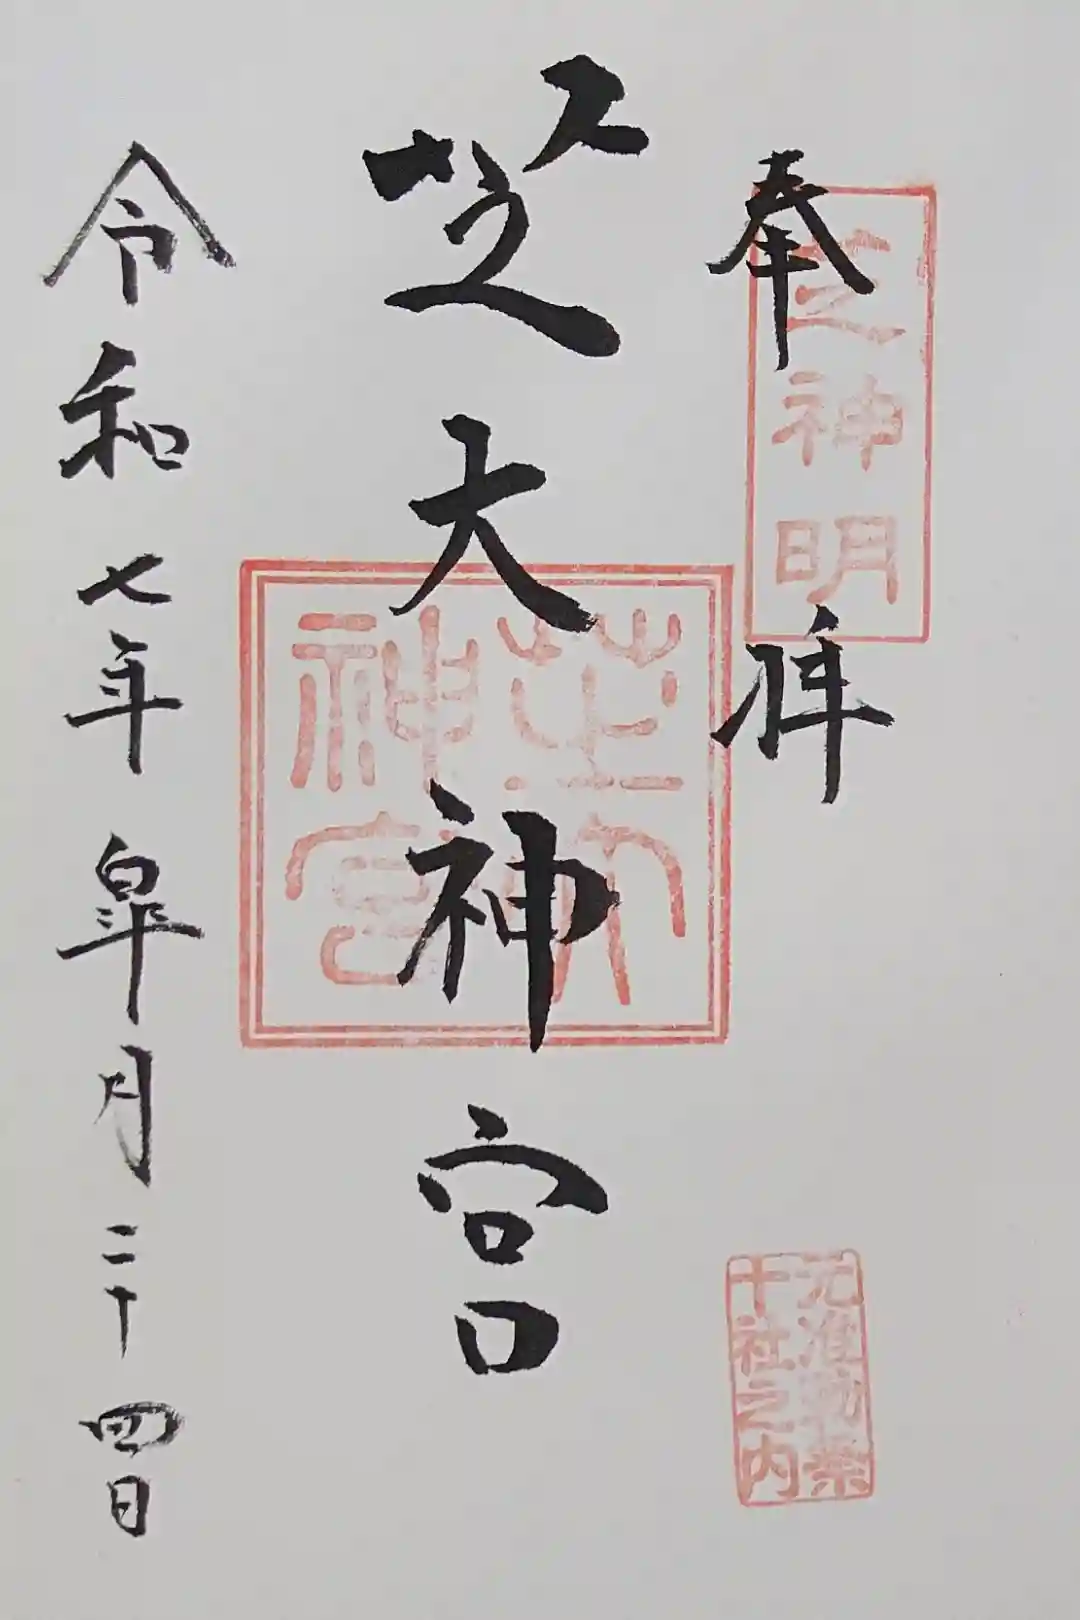 奉拝
芝神明
元准勅祭
十社之内
芝大神宮
芝大
神宮
令和七年皐月二十四日